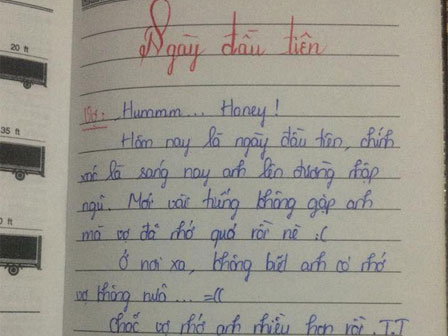 20 ft
35 ft
0 ft
Ngày đầu tiên
Vợ: Hummm... Honey!
Hôm nay là ngày đầu tiên, chính
xác là sáng nay anh lên đường nhập
ngũ. Mới vài tiếng không gặp anh
mà vợ đã nhớ quá rồi nè :(
Ở nơi xa, không biết anh có nhớ
vợ không nữa ... =((
Chắc vợ nhớ anh nhiều hơn rồi. T.T